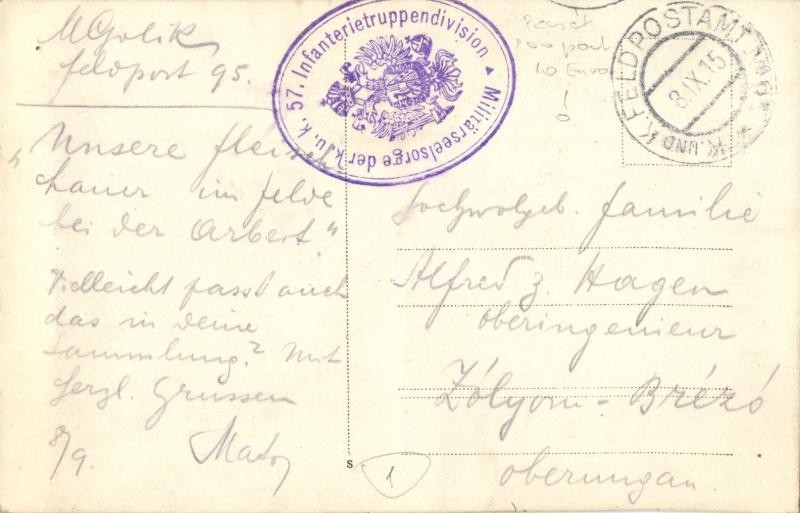 MGolik
feldpost 95.
„Unsere fleisch-
hauer im felde
bei der Arbeit"
Vielleicht passt auch
das in deine
Sammlung? Mit
herzl. Grüssen
8/9.
Militärseelsorge der k.u.k. 57. Infanterietruppendivision
pecsét
100 pont
10 Euro
!
K. UND K. FELDPOSTAMT
8.IX.15
Hochwolgeb. familie
Alfred z. Hagen
oberingenieur
Zólyom-Brézó
oberungarn.
S
1